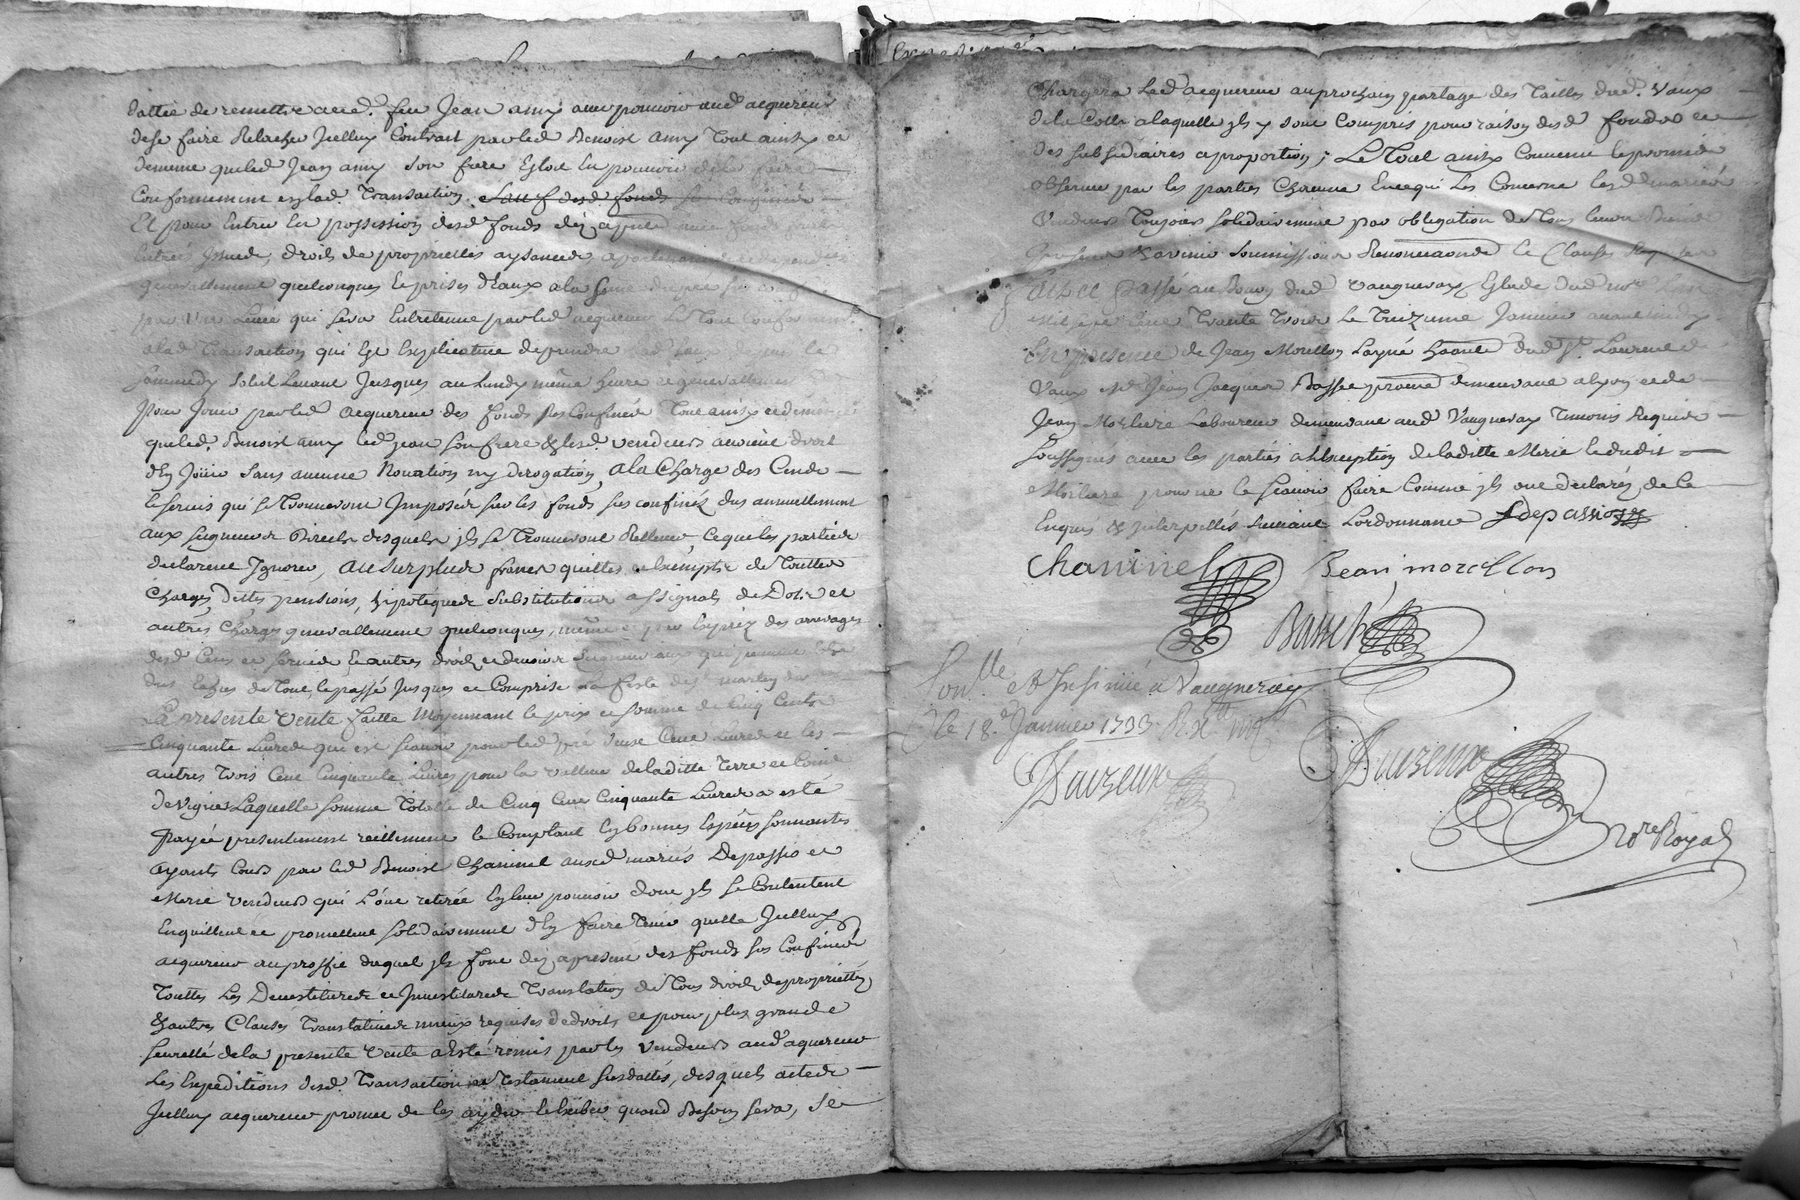 dattée de remettre aud. feu Jean amy avec pouvoir aud acquereur
dese faire Relacher Jcelluy Contrat parled Benoist amy Tout ainsy et
dememe queled Jean amy Son frere Estoit En pouvoir de le faire
Conformement eslad. Transaction. Sauf desd fonds sus Confinés
Et pour Entrer En possession desd fonds dez apresent
Entrées Issues, droits de proprietés aysances apartenances dependances
generallement quelconques Et prises d'Eaux a la
par une Levée qui Sera Entretenue parled acquereur Le Tout Conformement
alad Transaction qui Est Explicative deprendre Lad Eaux le
Sammedy Soleil Levant Jusques au Lundy même heure et generallement
pour Jouir parled acquereur des fonds sus Confinés Tout ainsy et de meme
queled. Benoist amy led jean son frere & lesd. vendeurs avoient droit
d'En Joüir Sans aucune Novation ny derogation, a la Charge des Cens &
le servis qui se Trouveront Imposés sur les fonds sus confinéz dus annuellement
aux Seigneurs Directs desquels jls se Trouveront Relever, ce que les parties
declarent Jgnorer, au surplus francs quittes et exempts de Touttes
Charges, dettes pensions, hipoteques Substitutions assignats de Dot et
autres Charges generallement quelconques, même par Exprez des arrerages
desd Cens et servis & autres droits et devoirs Seigneuriaux qui peuvent Etre
dus Echus de Tout le passé Jusques et Compris La feste de St martin dernier
La presente vente faitte Moyennant le prix et somme de Cinq Cents
Cinquante Livres qui est scavoir pour led pré deux Cent Livres et les
autres Trois Cent Cinquante Livres pour la valleur deladitte Terre et Coin
devigne Laquelle somme Totalle de Cinq Cent Cinquante Livres a esté
payée presentement reellement le Comptant En bonnes Espèces sonnantes
ayants Cours par led Benoist Chaninel auxd mariés Depassio et
Merie vendeurs qui L'ont retirée En leur pouvoir dont jls se Contentent
Enquittent et promettent solidairement d'En faire Tenir quitte Jcelluy
acquereur au proffit duquel jls font dez apresent des fonds sus Confinés
Touttes Les Devestitures et Jnvestitures Translation de Tous droits de proprietés
& autres Clauses Translatives mieux requises de droits, et pour plus grande
seuretté de la presente vente a esté remis par les vendeurs aud' aquereur
Les Expeditions desd. Transaction et Testament susdattés, desquels actes
Jcelluy acquereur promet de les ayder & exhiber quand Besoin sera, se
Chargera Led acquereur au prochain partage des Tailles dud. Vaux
de la Cotte alaquelle jls y sont Compris pour raison desd fonds et
des subsidiaires aproportion; Le Tout ainsy Convenu le promis
observer par les parties Chacune En ce qui Les Concerne lesd mariés
Vendeurs Toujours solidairement par obligation de Tous leurs Biens
presents & avenir soumissions Renonciations le Clauses
fait et passé au Bourg dud Vaugneray Etude dud notre
mil sept Cent Trente Trois Le Treizieme Janvier avant midy
En presence de Jean Morellon Layné dud St. Laurent de
Vaux Me Jean Jacques Basset demeurant a lyon et de
Jean Morliere Laboureur demeurant aud Vaugneray Temoins Requis
Soussignés avec les parties a L'exception deladitte Merie & dudit
Morliere pour ne le scavoir faire Comme jls ont declaréz de ce
Enquis & Jnterpellés suivant Lordonnance depassio
Chaninel Jean morellon
Basset
Conlle. & Insinué à Vaugneray
le 18.e Janvier 1733.
Dauzeux Dauzeux
nore Royal